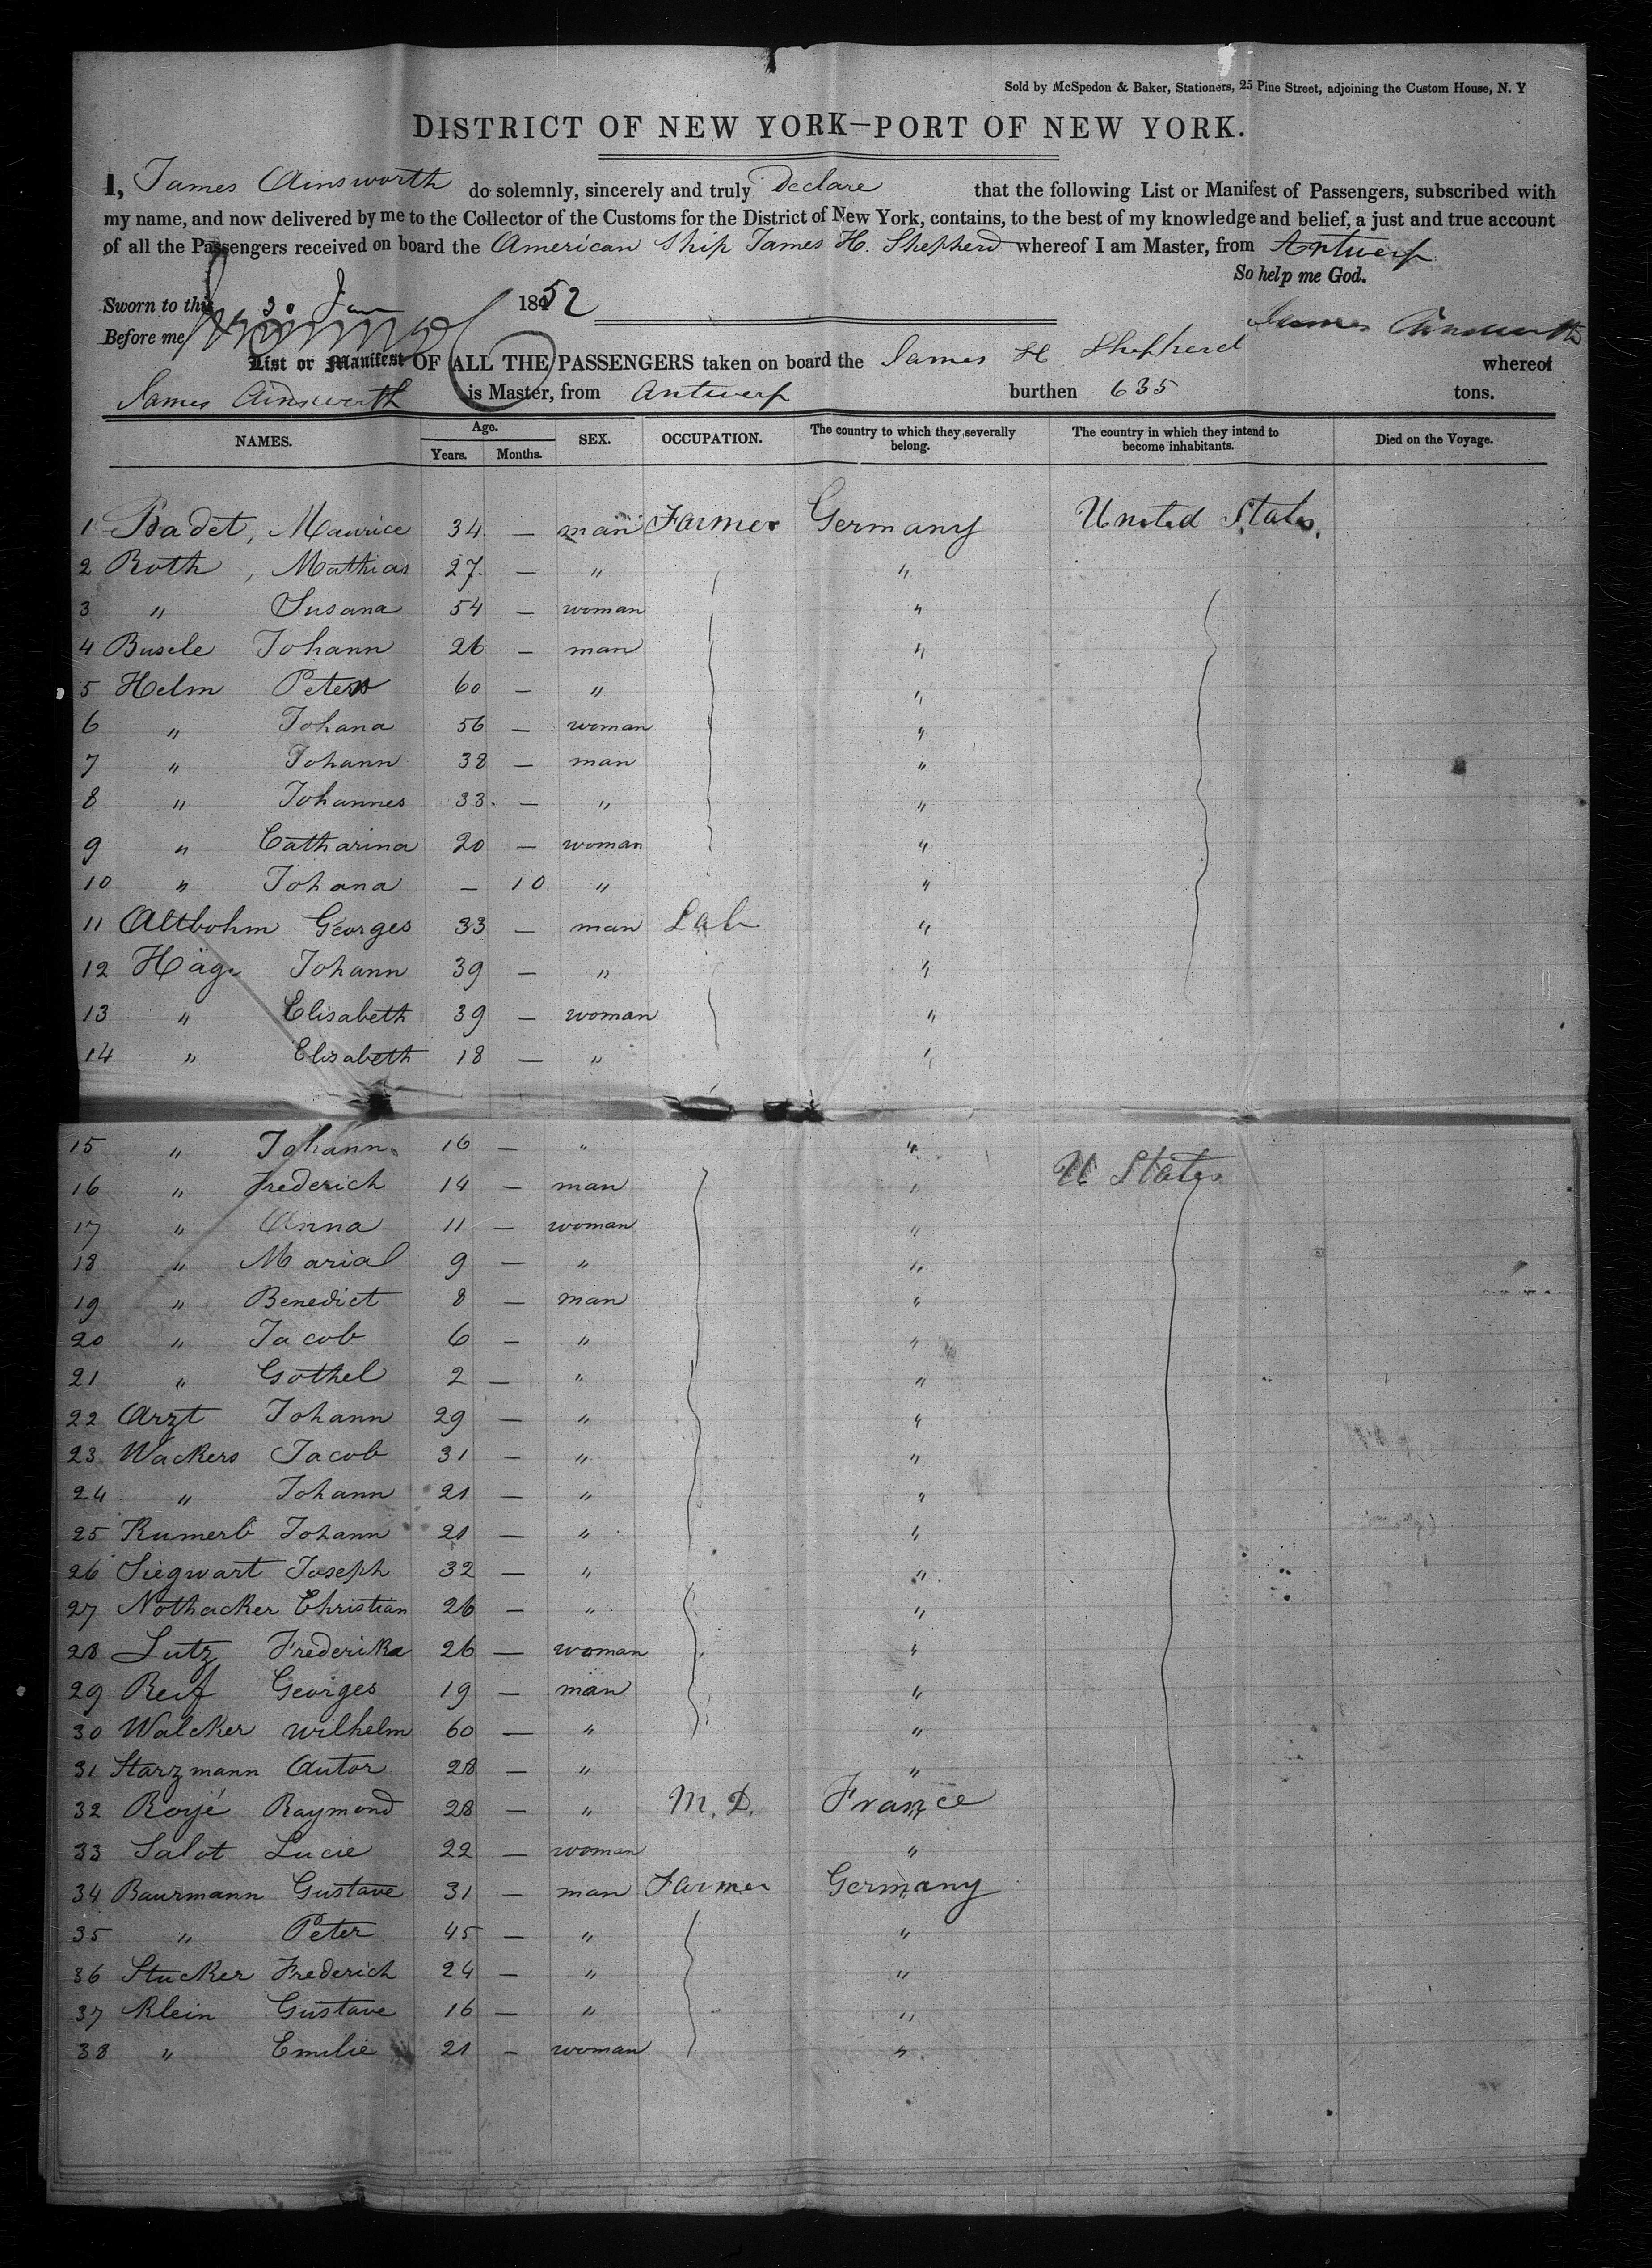 Sold by McSpedon & Baker, Stationers, 25 Pine Street, adjoining the Custom House, N. Y
DISTRICT OF NEW YORK—PORT OF NEW YORK.
I, James Ainsworth do solemnly, sincerely and truly Declare that the following List or Manifest of Passengers, subscribed with
my name, and now delivered by me to the Collector of the Customs for the District of New York, contains, to the best of my knowledge and belief, a just and true account
of all the Passengers received on board the American Ship James H. Shepherd whereof I am Master, from Antwerp
So help me God.
Sworn to this 30 Jan 1852
James Ainsworth
Before me
List or Manifest OF ALL THE PASSENGERS taken on board the James H Shepherd whereof
James Ainsworth is Master, from Antwerp burthen 635 tons.
NAMES. Age. Years. Months. SEX. OCCUPATION. The country to which they severally belong. The country in which they intend to become inhabitants. Died on the Voyage.
1 Badet, Maurice 34 — man Farmer Germany United States.
2 Roth, Mathias 27 — " "
3 " Susana 54 — woman "
4 Busele Johann 26 — man "
5 Helm Peter 60 — " "
6 " Johana 56 — woman "
7 " Johann 38 — man "
8 " Johannes 33. — " "
9 " Catharina 20 — woman "
10 " Johana — 10 " "
11 Altbohm Georges 33 — man Lab "
12 Häge Johann 39 — " "
13 " Elisabeth 39 — woman "
14 " Elisabeth 18 — " "
15 " Johann 16 — " " U States
16 " Frederich 14 — man "
17 " Anna 11 — woman "
18 " Marial 9 — " "
19 " Benedict 8 — man "
20 " Jacob 6 — " "
21 " Gothel 2 — " "
22 Arzt Johann 29 — " "
23 Wackers Jacob 31 — " "
24 " Johann 21 — " "
25 Johann 21 — " "
26 Siegwart Joseph 32 — " "
27 Nothacker Christian 26 — " "
28 Lutz Frederika 26 — woman "
29 Reif Georges 19 — man "
30 Walcker Wilhelm 60 — " "
31 Starzmann Autor 28 — " "
32 Royé Raymond 28 — " M. D. France
33 Salot Lucie 22 — woman "
34 Baurmann Gustave 31 — man Farmer Germany
35 " Peter 45 — " "
36 Stucker Frederich 24 — " "
37 Klein Gustave 16 — " "
38 " Emilie 21 — woman "